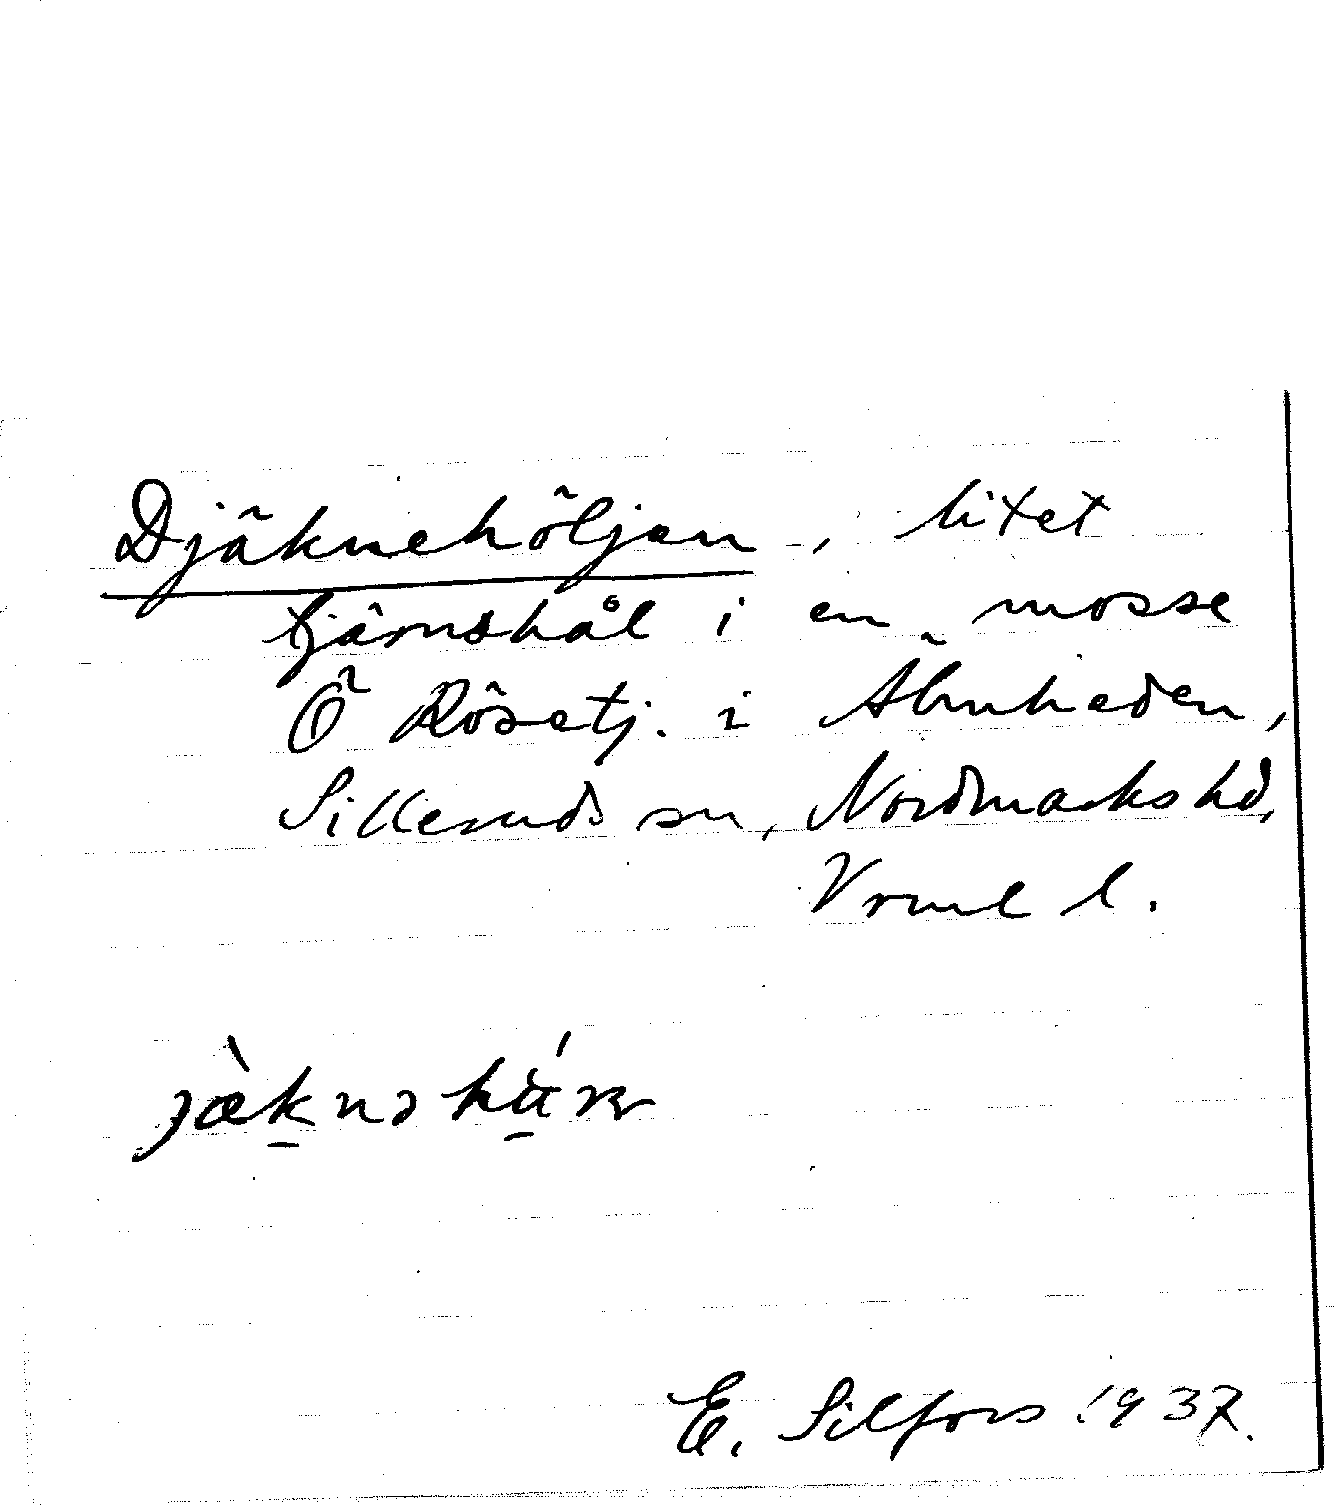 Djäknehöljen, litet
tjärnshål i en mosse
Ö Rösetj. i Älmheden,
Silleruds sn, Nordmarks hd,
Vrml l.
E. Silfors 1937.